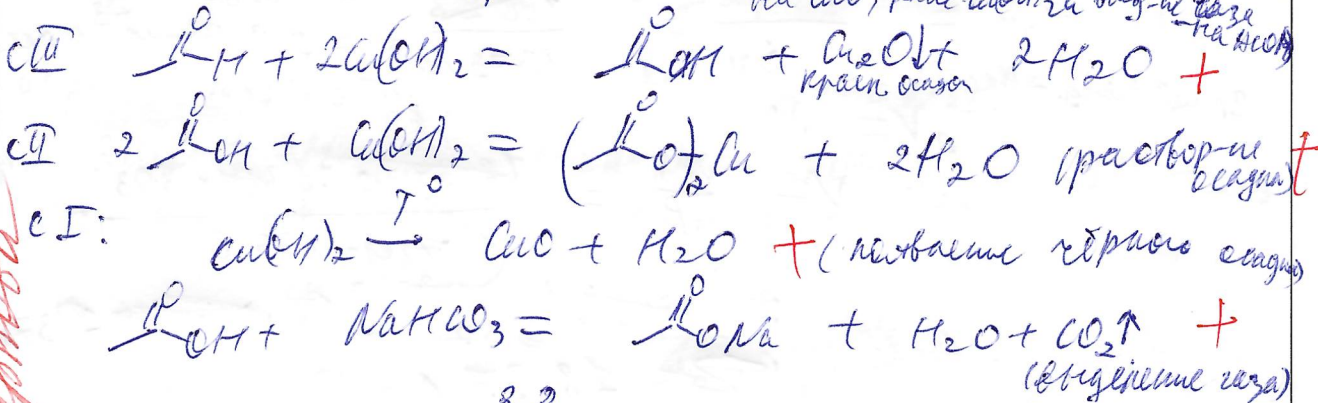 на
на AcOH)
с III CH3C(O)H + 2Cu(OH)2 = CH3C(O)OH + Cu2O↓ + 2H2O +
красн осадок
с II 2 CH3C(O)OH + Cu(OH)2 = (CH3C(O)O)2Cu + 2H2O (раствор-ие осадка) +
с I: Cu(OH)2 →T° CuO + H2O + (появление чёрного осадка)
CH3C(O)OH + NaHCO3 = CH3C(O)ONa + H2O + CO2↑ +
(выделение газа)